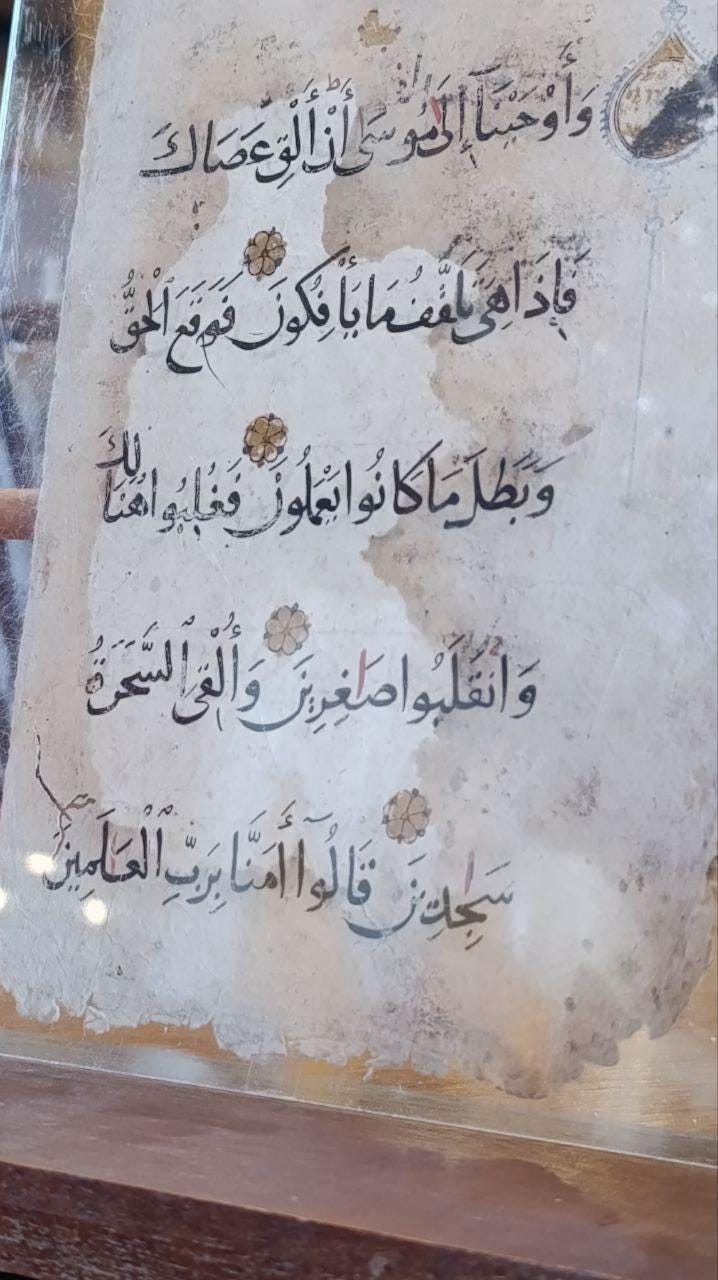 وَأَوْحَيْنَآ إِلَىٰ مُوسَىٰ أَنْ أَلْقِ عَصَاكَ
فَإِذَا هِيَ تَلَقَّفُ مَا يَأْفِكُونَ فَوَقَعَ الْحَقُّ
وَبَطَلَ مَا كَانُوا يَعْمَلُونَ فَغُلِبُوا هُنَالِكَ
وَانقَلَبُوا صَاغِرِينَ وَأُلْقِيَ السَّحَرَةُ
سَاجِدِينَ قَالُوٓا أَمَنَّا بِرَبِّ الْعَالَمِينَ